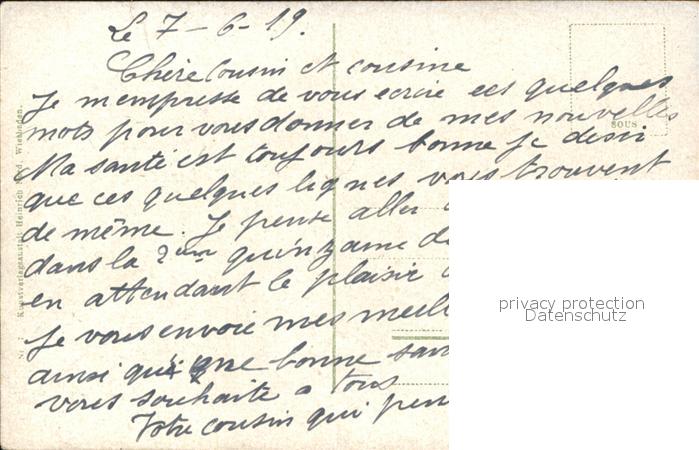 Le 7-6-19.
Chère Cousin et cousine
Je m'empresse de vous ecrie ces quelques
mots pour vous donner de mes nouvelles
SOUS
Ma santé est toujours bonne je desir
que ces quelques lignes vous trouvent
de même. Je pense aller
dans la 2em quinzaine d
en attendant le plaisir
Je vous envoie mes meill
ainsi que une bonne san
vous souhaite a tous
Votre cousin qui pen
Kunstverlagsanstalt Heinrich Wiesbaden.
privacy protection
Datenschutz